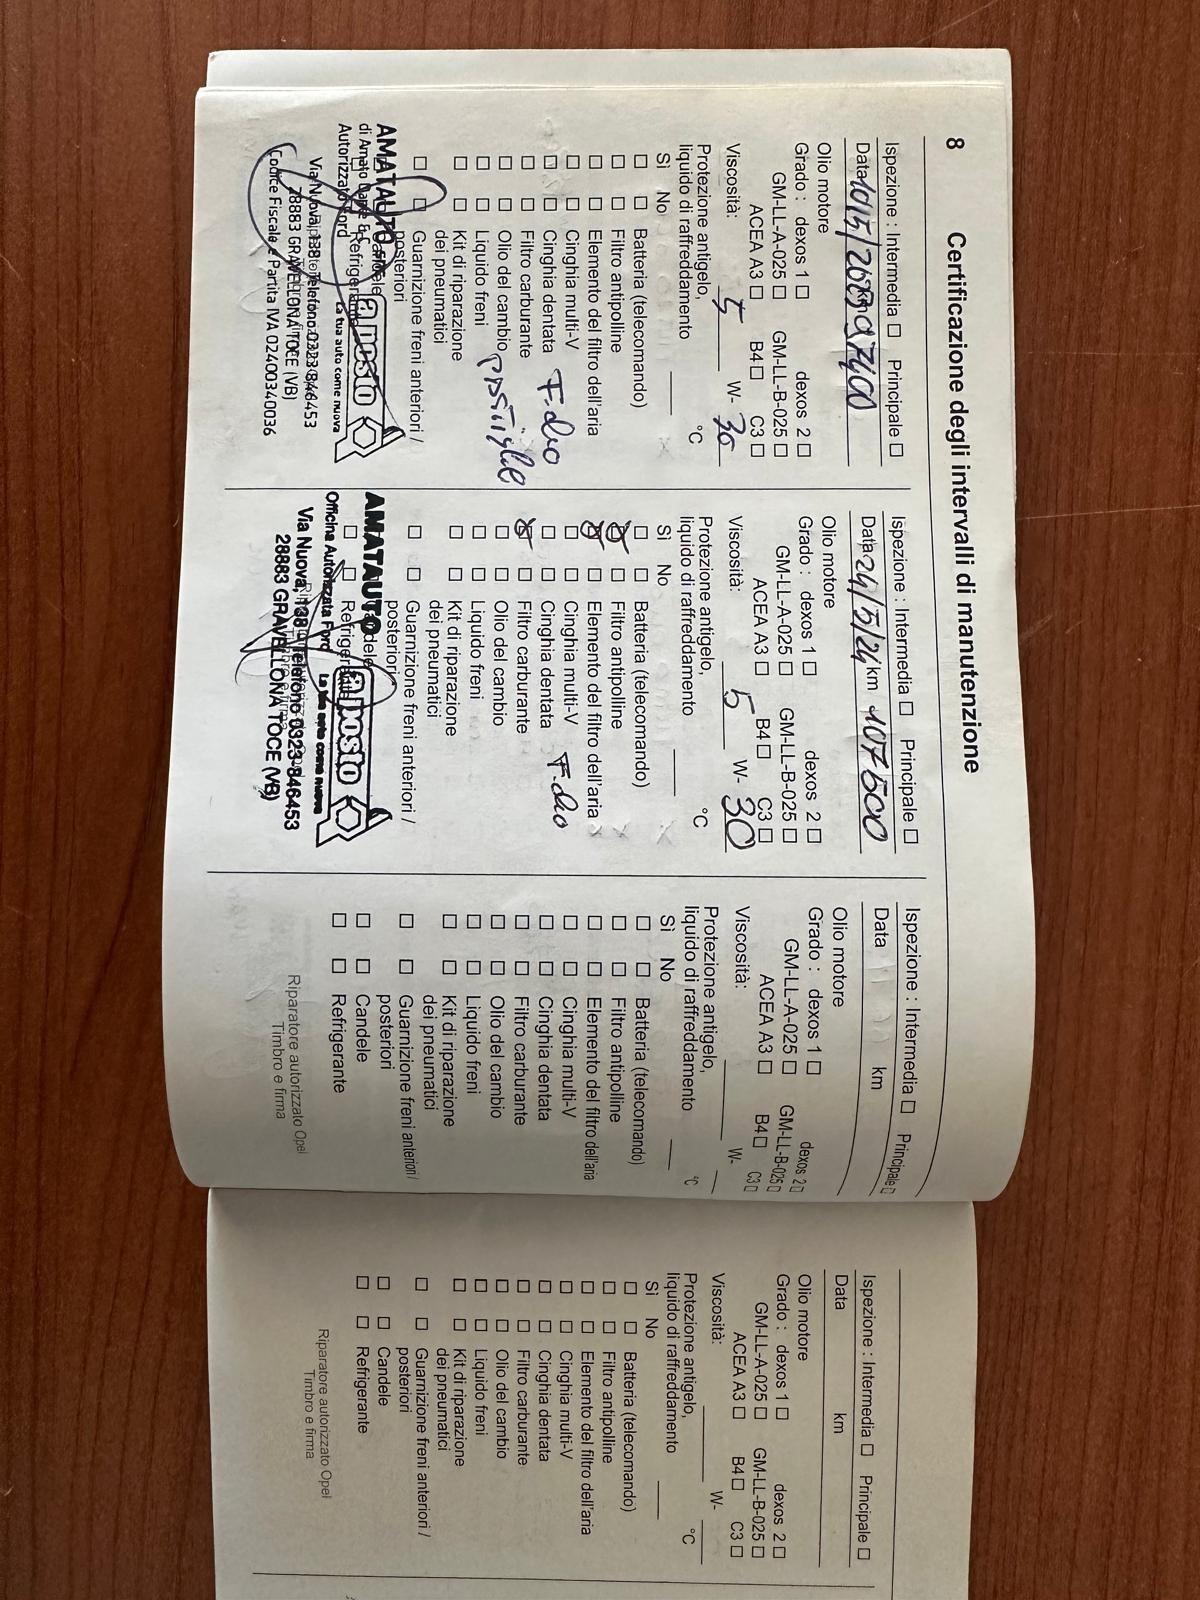 8
Certificazione degli intervalli di manutenzione
Ispezione : Intermedia ☐ Principale ☐
Data 10/5/2023 km 97400
Olio motore
Grado : dexos 1 ☐ dexos 2 ☐
GM-LL-A-025 ☐ GM-LL-B-025 ☐
ACEA A3 ☐ B4 ☐ C3 ☐
Viscosità: 5 W- 30
Protezione antigelo,
liquido di raffreddamento °C
Sì No
☐ ☐ Batteria (telecomando)
☐ ☐ Filtro antipolline
☐ ☐ Elemento del filtro dell'aria
☐ ☐ Cinghia multi-V
☐ ☐ Cinghia dentata F. olio
☐ ☐ Filtro carburante
☐ ☐ Olio del cambio pastiglie
☐ ☐ Liquido freni
☐ ☐ Kit di riparazione
dei pneumatici
☐ ☐ Guarnizione freni anteriori /
posteriori
Refrigerante
AMATAUTO
di Amato Dante &
Autorizzato Ford
a posto
La tua auto come nuova
Via Nuova, 138 Telefono 0323 846453
28883 GRAVELLONA TOCE (VB)
Codice Fiscale e Partita IVA 02400340036
Ispezione : Intermedia ☐ Principale ☐
Data 24/5/24 km 107600
Olio motore
Grado : dexos 1 ☐ dexos 2 ☐
GM-LL-A-025 ☐ GM-LL-B-025 ☐
ACEA A3 ☐ B4 ☐ C3 ☐
Viscosità: 5 W- 30
Protezione antigelo,
liquido di raffreddamento °C
Sì No
☐ ☐ Batteria (telecomando)
☒ ☐ Filtro antipolline
☒ ☐ Elemento del filtro dell'aria
☐ ☐ Cinghia multi-V F. olio
☐ ☐ Cinghia dentata
☒ ☐ Filtro carburante
☐ ☐ Olio del cambio
☐ ☐ Liquido freni
☐ ☐ Kit di riparazione
dei pneumatici
☐ ☐ Guarnizione freni anteriori /
posteriori
☐ ☐ Refrigerante
AMATAUTO
Officina Autorizzata Ford
a posto
La tua auto come nuova
Via Nuova, 138 Telefono 0323-846453
28883 GRAVELLONA TOCE (VB)
Ispezione : Intermedia ☐ Principale ☐
Data km
Olio motore
Grado : dexos 1 ☐ dexos 2 ☐
GM-LL-A-025 ☐ GM-LL-B-025 ☐
ACEA A3 ☐ B4 ☐ C3 ☐
Viscosità: W-
Protezione antigelo,
liquido di raffreddamento °C
Sì No
☐ ☐ Batteria (telecomando)
☐ ☐ Filtro antipolline
☐ ☐ Elemento del filtro dell'aria
☐ ☐ Cinghia multi-V
☐ ☐ Cinghia dentata
☐ ☐ Filtro carburante
☐ ☐ Olio del cambio
☐ ☐ Liquido freni
☐ ☐ Kit di riparazione
dei pneumatici
☐ ☐ Guarnizione freni anteriori /
posteriori
☐ ☐ Candele
☐ ☐ Refrigerante
Riparatore autorizzato Opel
Timbro e firma
Ispezione : Intermedia ☐ Principale ☐
Data km
Olio motore
Grado : dexos 1 ☐ dexos 2 ☐
GM-LL-A-025 ☐ GM-LL-B-025 ☐
ACEA A3 ☐ B4 ☐ C3 ☐
Viscosità: W-
Protezione antigelo,
liquido di raffreddamento °C
Sì No
☐ ☐ Batteria (telecomando)
☐ ☐ Filtro antipolline
☐ ☐ Elemento del filtro dell'aria
☐ ☐ Cinghia multi-V
☐ ☐ Cinghia dentata
☐ ☐ Filtro carburante
☐ ☐ Olio del cambio
☐ ☐ Liquido freni
☐ ☐ Kit di riparazione
dei pneumatici
☐ ☐ Guarnizione freni anteriori /
posteriori
☐ ☐ Candele
☐ ☐ Refrigerante
Riparatore autorizzato Opel
Timbro e firma